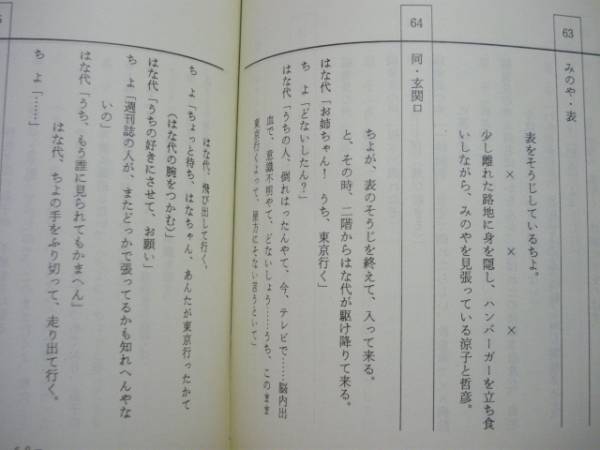 63
みのや・表
表をそうじしているちよ。
× × ×
少し離れた路地に身を隠し、ハンバーガーを立ち食
いしながら、みのやを見張っている涼子と哲彦。
64
同・玄関口
ちよが、表のそうじを終えて、入って来る。
と、その時、二階からはな代が駆け降りて来る。
はな代「お姉ちゃん! うち、東京行く」
ち よ「どないしたん?」
はな代「うちの人、倒れはったんやて、今、テレビで……脳内出
血で、意識不明やて、どないしょう……うち、このまま
東京行くよって、
はな代、飛び出して行く。
ち よ「ちょっと待ち、はなちゃん、あんたが東京行ったかて
(はな代の腕をつかむ)」
はな代「うちの好きにさせて、お願い」
ち よ「週刊誌の人が、またどっかで張ってるかも知れへんやな
いの」
はな代「うち、もう誰に見られてもかまへん」
はな代、ちよの手をふり切って、走り出て行く。
ち よ「……」